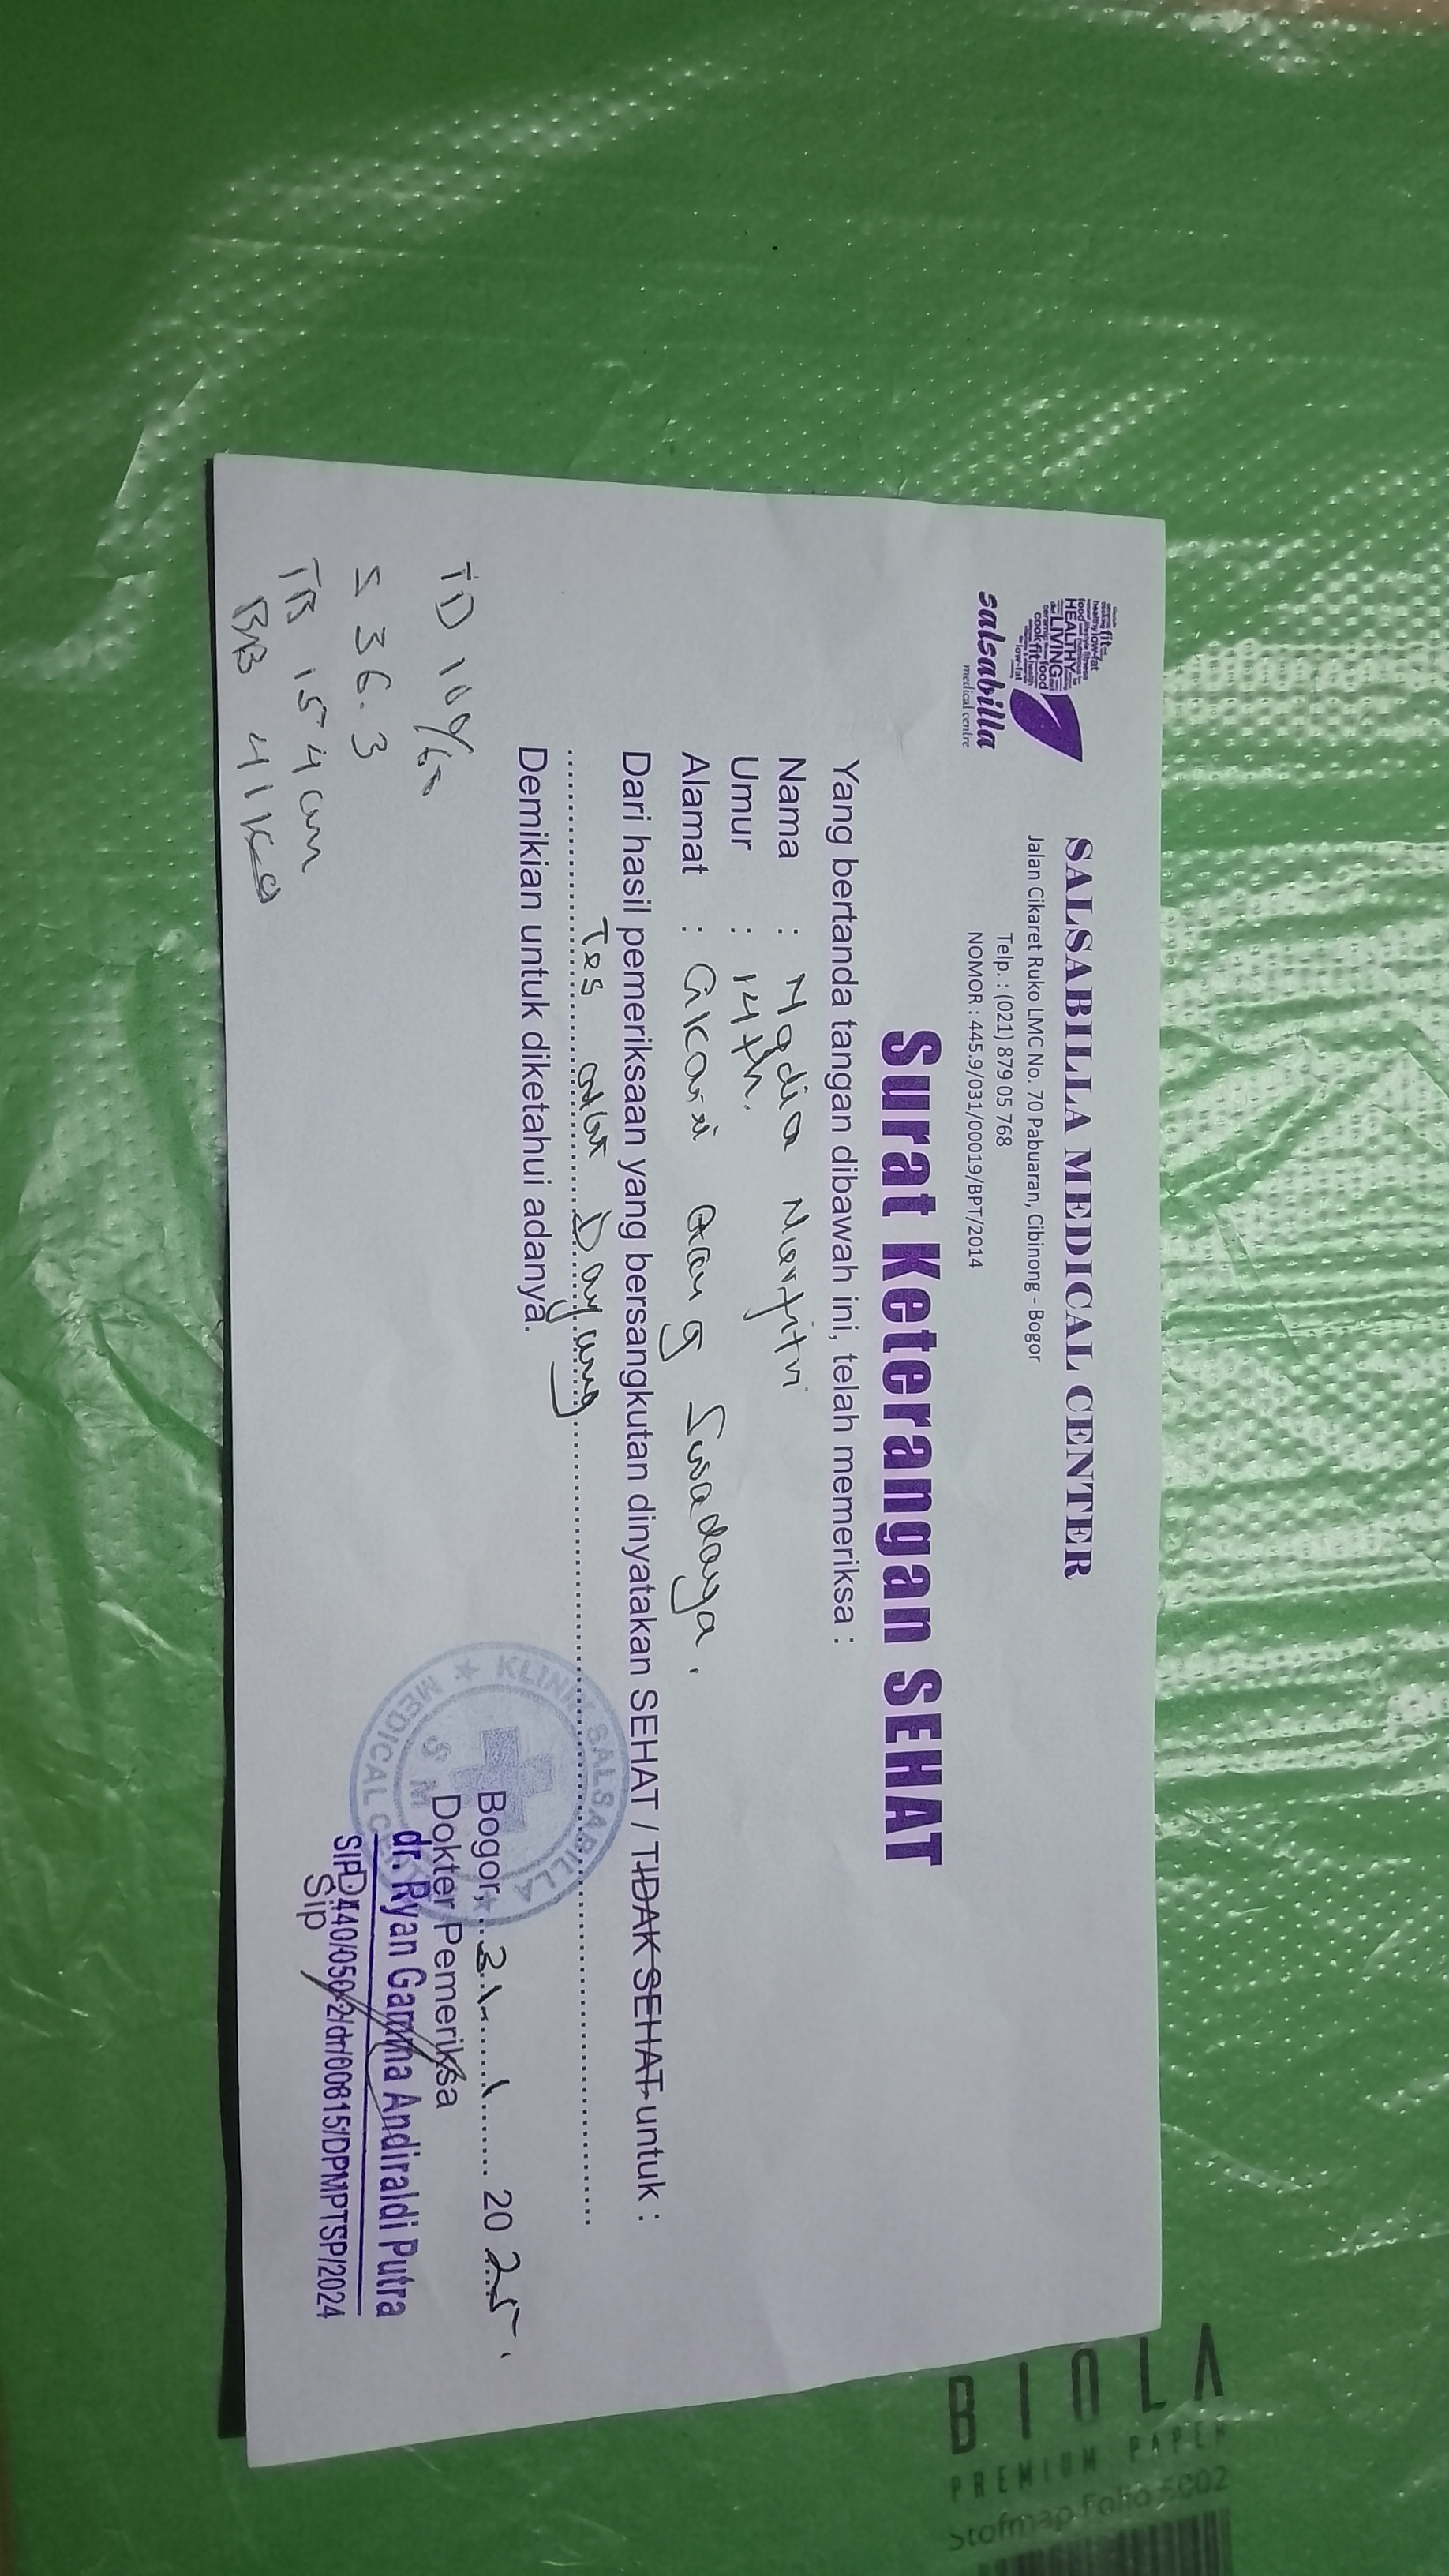 salsabilla
medical centre
SALSABILLA MEDICAL CENTER
Jalan Cikaret Ruko LMC No. 70 Pabuaran, Cibinong - Bogor
Telp. : (021) 879 05 768
NOMOR : 445.9/031/00019/BPT/2014
Surat Keterangan SEHAT
Yang bertanda tangan dibawah ini, telah memeriksa :
Nama : Nadia Nurfitri
Umur : 14 th.
Alamat : Cikaret Gang Swadaya.
Dari hasil pemeriksaan yang bersangkutan dinyatakan SEHAT / TIDAK SEHAT untuk :
Tes Dayung
Demikian untuk diketahui adanya.
Bogor, 31 1 2025.
Dokter Pemeriksa
dr. Ryan Gamma Andiraldi Putra
Sip
TD 100/60
S 36.3
TB 154 cm
BB 41 KG
KLINIK SALSABILLA
MEDICAL
S M
BIOLA
PREMIUM PAPER
Stofmap Folio 5002